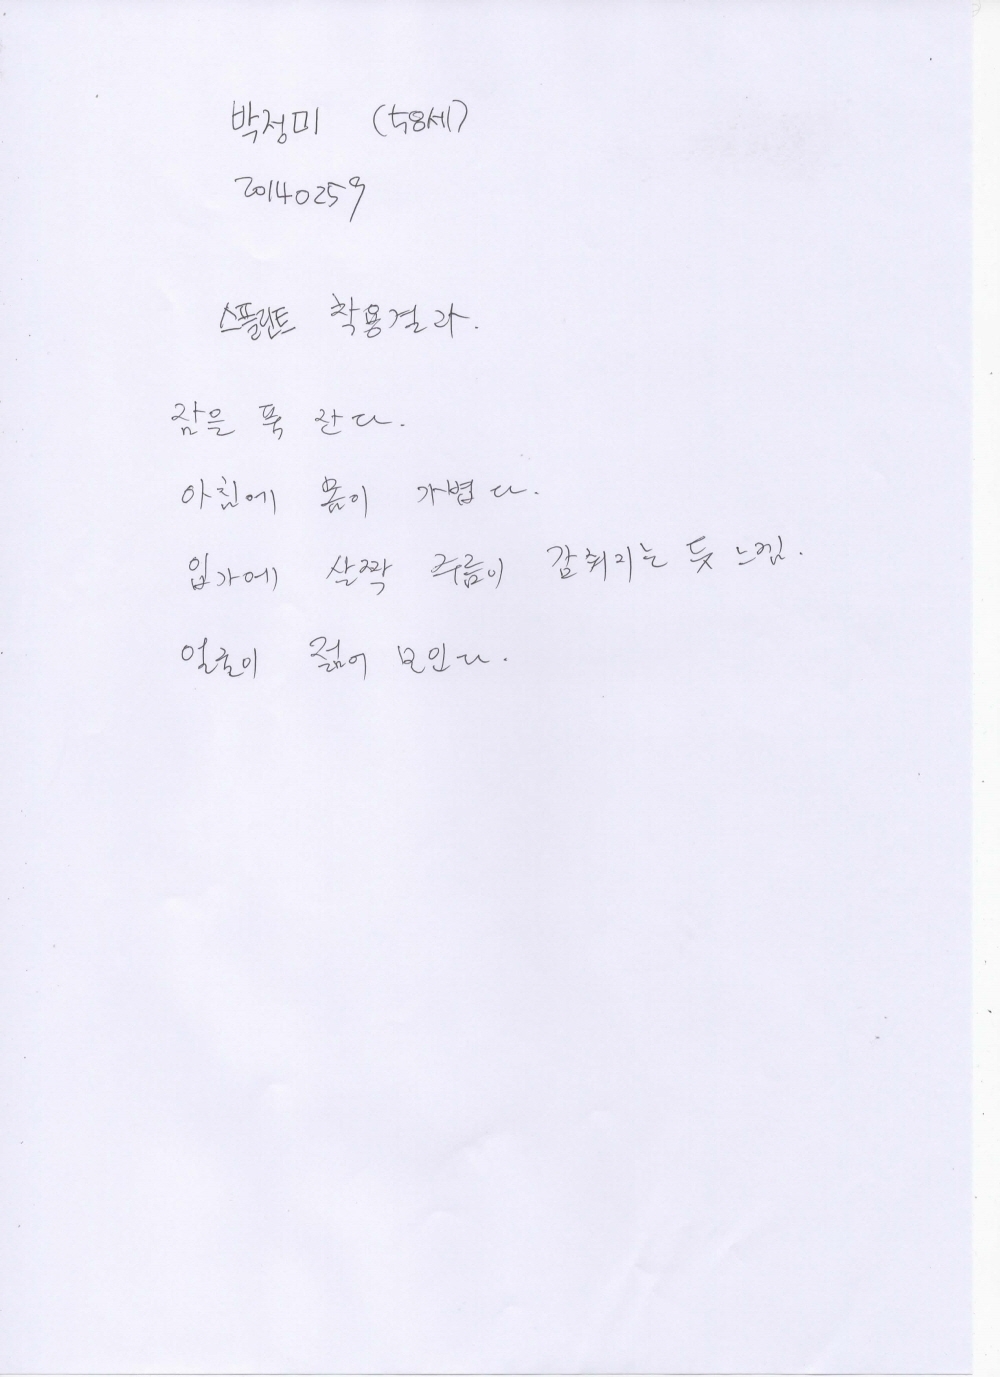 박정미 (58세)
20140259
스플린트 착용결과.
잠을 푹 잔다.
아침에 몸이 가볍다.
입가에 살짝 주름이 감취지는 듯 느낌.
얼굴이 젊어 보인다.